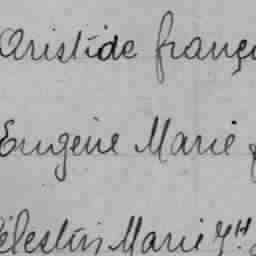 Aristide franç
Eugène Marie
élestin Marie J.H.